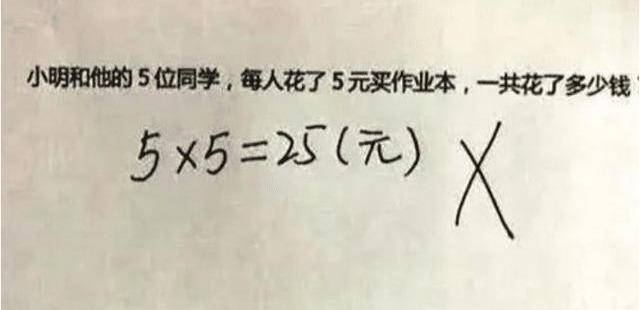 小明和他的5位同学，每人花了5元买作业本，一共花了多少钱
5×5=25(元) X